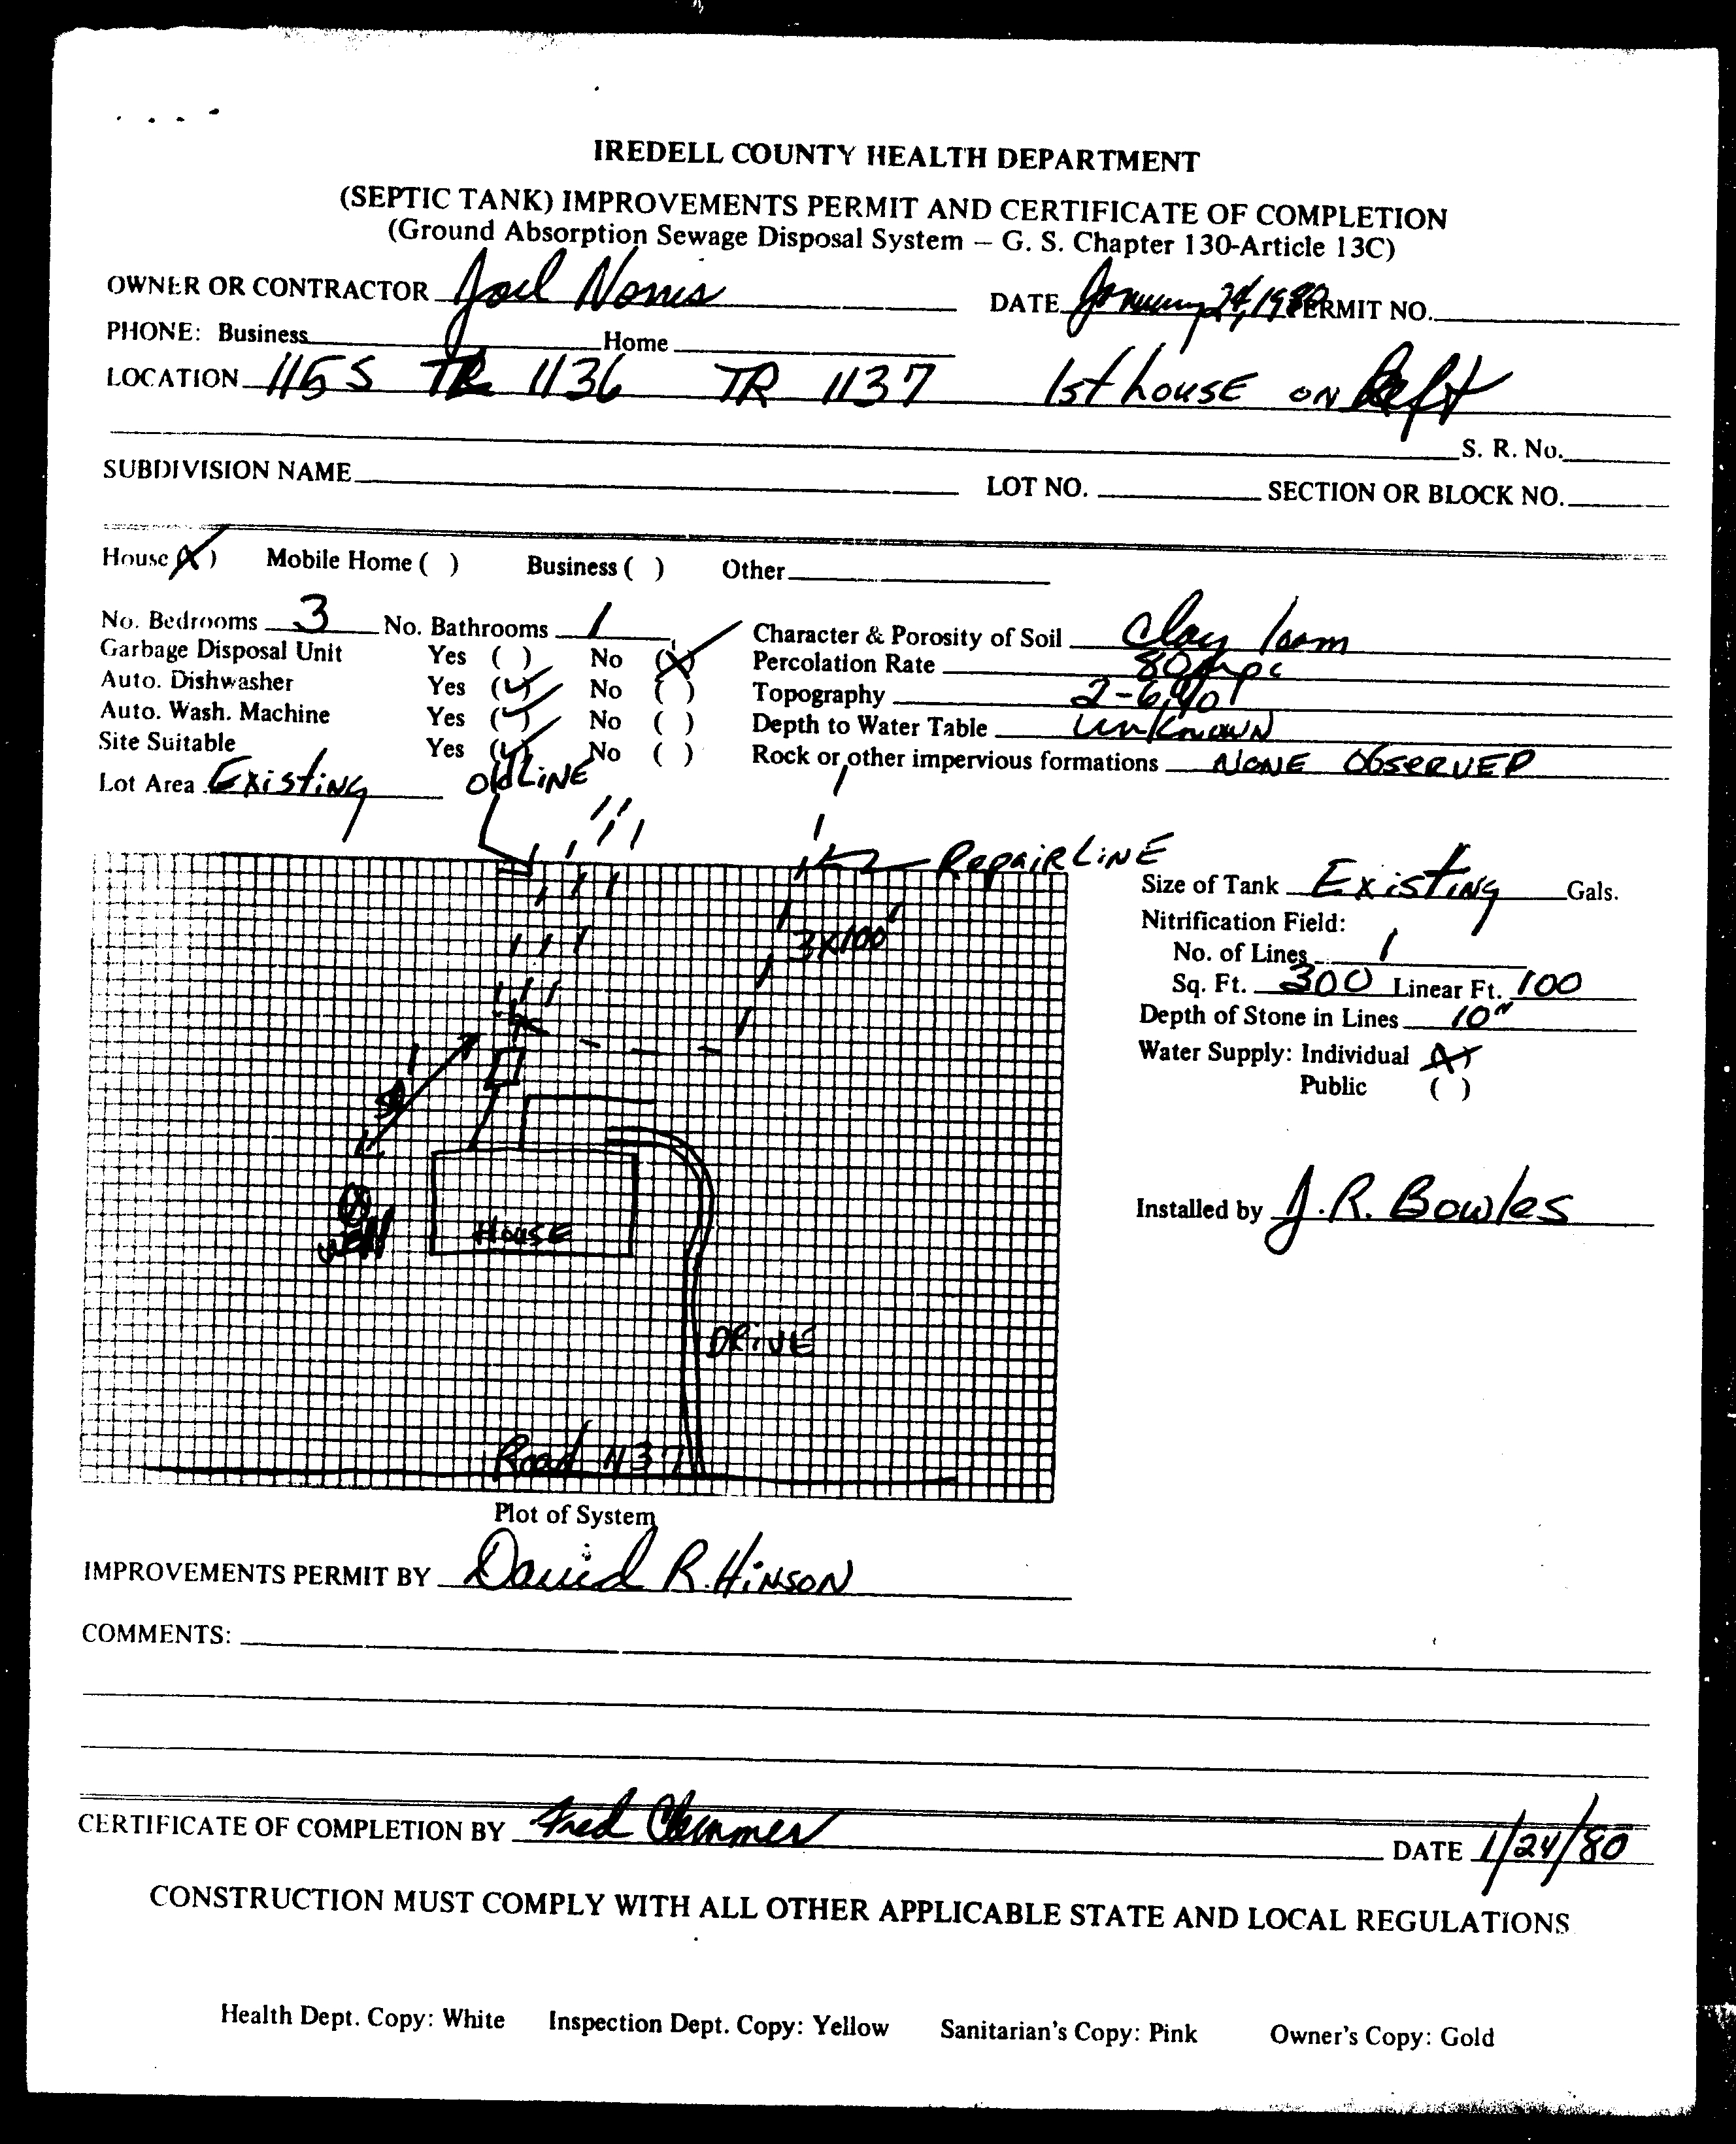 IREDELL COUNTY HEALTH DEPARTMENT
(SEPTIC TANK) IMPROVEMENTS PERMIT AND CERTIFICATE OF COMPLETION
(Ground Absorption Sewage Disposal System – G. S. Chapter 130-Article 13C)
OWNER OR CONTRACTOR Joel Norris DATE January 24, 1980 PERMIT NO.
PHONE: Business Home
LOCATION 115 S TR 1136 TR 1137 1st house on left
S. R. No.
SUBDIVISION NAME LOT NO. SECTION OR BLOCK NO.
House (X) Mobile Home ( ) Business ( ) Other
No. Bedrooms 3 No. Bathrooms 1 Character & Porosity of Soil Clay loam
Garbage Disposal Unit Yes ( ) No (X) Percolation Rate 80 mpi
Auto. Dishwasher Yes (✓) No ( ) Topography 2-6%
Auto. Wash. Machine Yes (✓) No ( ) Depth to Water Table Unknown
Site Suitable Yes (✓) No ( ) Rock or other impervious formations NONE OBSERVED
Lot Area Existing Old LINE
Repair LINE
3x100'
50'
Well
House
DRIVE
Road 1137
Size of Tank Existing Gals.
Nitrification Field:
No. of Lines 1
Sq. Ft. 300 Linear Ft. 100
Depth of Stone in Lines 10"
Water Supply: Individual (X)
Public ( )
Installed by J.R. Bowles
Plot of System
IMPROVEMENTS PERMIT BY David R. HINSON
COMMENTS:
CERTIFICATE OF COMPLETION BY Fred Clemmer DATE 1/24/80
CONSTRUCTION MUST COMPLY WITH ALL OTHER APPLICABLE STATE AND LOCAL REGULATIONS
Health Dept. Copy: White Inspection Dept. Copy: Yellow Sanitarian's Copy: Pink Owner's Copy: Gold